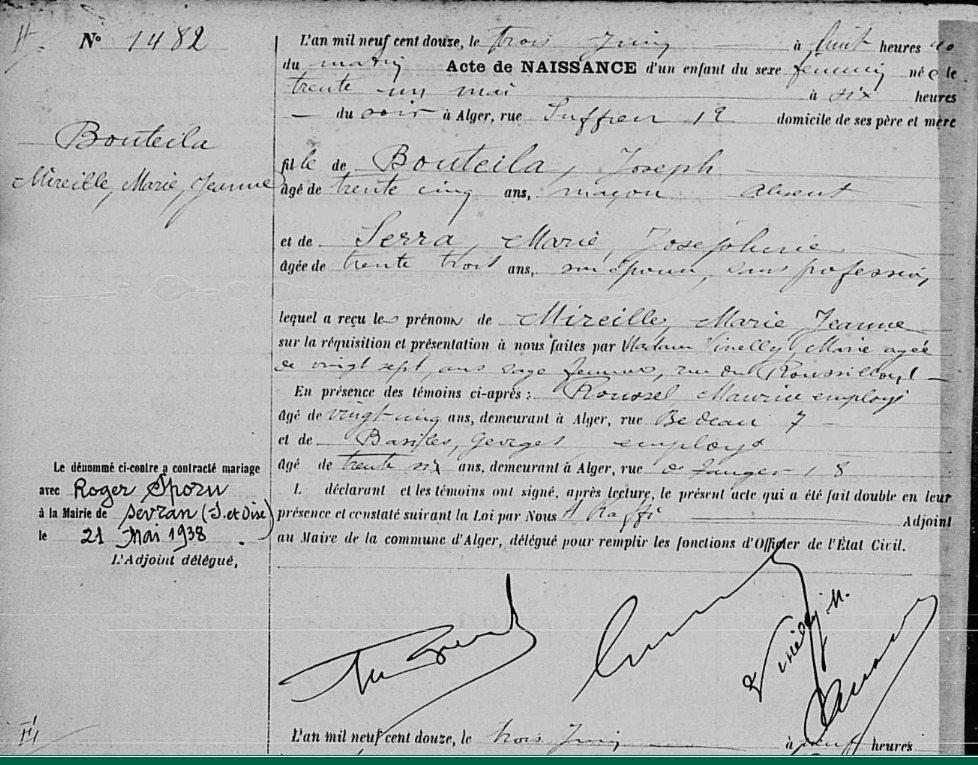 N° 1482
Bouteila
Mireille, Marie, Jeanne
Le dénommé ci-contre a contracté mariage
avec Roger Sporn
à la Mairie de Sevran (S. et Oise)
le 21 Mai 1938.
L'Adjoint délégué,
L'an mil neuf cent douze, le trois Juin à huit heures
du matin Acte de NAISSANCE d'un enfant du sexe féminin née le
trente un mai à six heures
du soir à Alger, rue Suffren 12 domicile de ses père et mère
fille de Bouteila, Joseph
âgé de trente cinq ans, maçon absent
et de Serra, Marie, Joséphine
âgée de trente trois ans, son épouse, sans profession,
lequel a reçu les prénoms de Mireille, Marie Jeanne
sur la réquisition et présentation à nous faites par Madame Vinelly, Marie agée
de vingt sept, ans sage femme, rue du Roussillon, 1
En présence des témoins ci-après : Roussel Maurice employé
âgé de vingt-cinq ans, demeurant à Alger, rue Bedeau 7
et de Georges employé
âgé de trente six ans, demeurant à Alger, rue de Tanger, 18
L déclarant et les témoins ont signé, après lecture, le présent acte qui a été fait double en leur
présence et constaté suivant la Loi par Nous Adjoint
au Maire de la commune d'Alger, délégué pour remplir les fonctions d'Officier de l'État Civil.
Vinelly M.
L'an mil neuf cent douze, le trois Juin à neuf heures